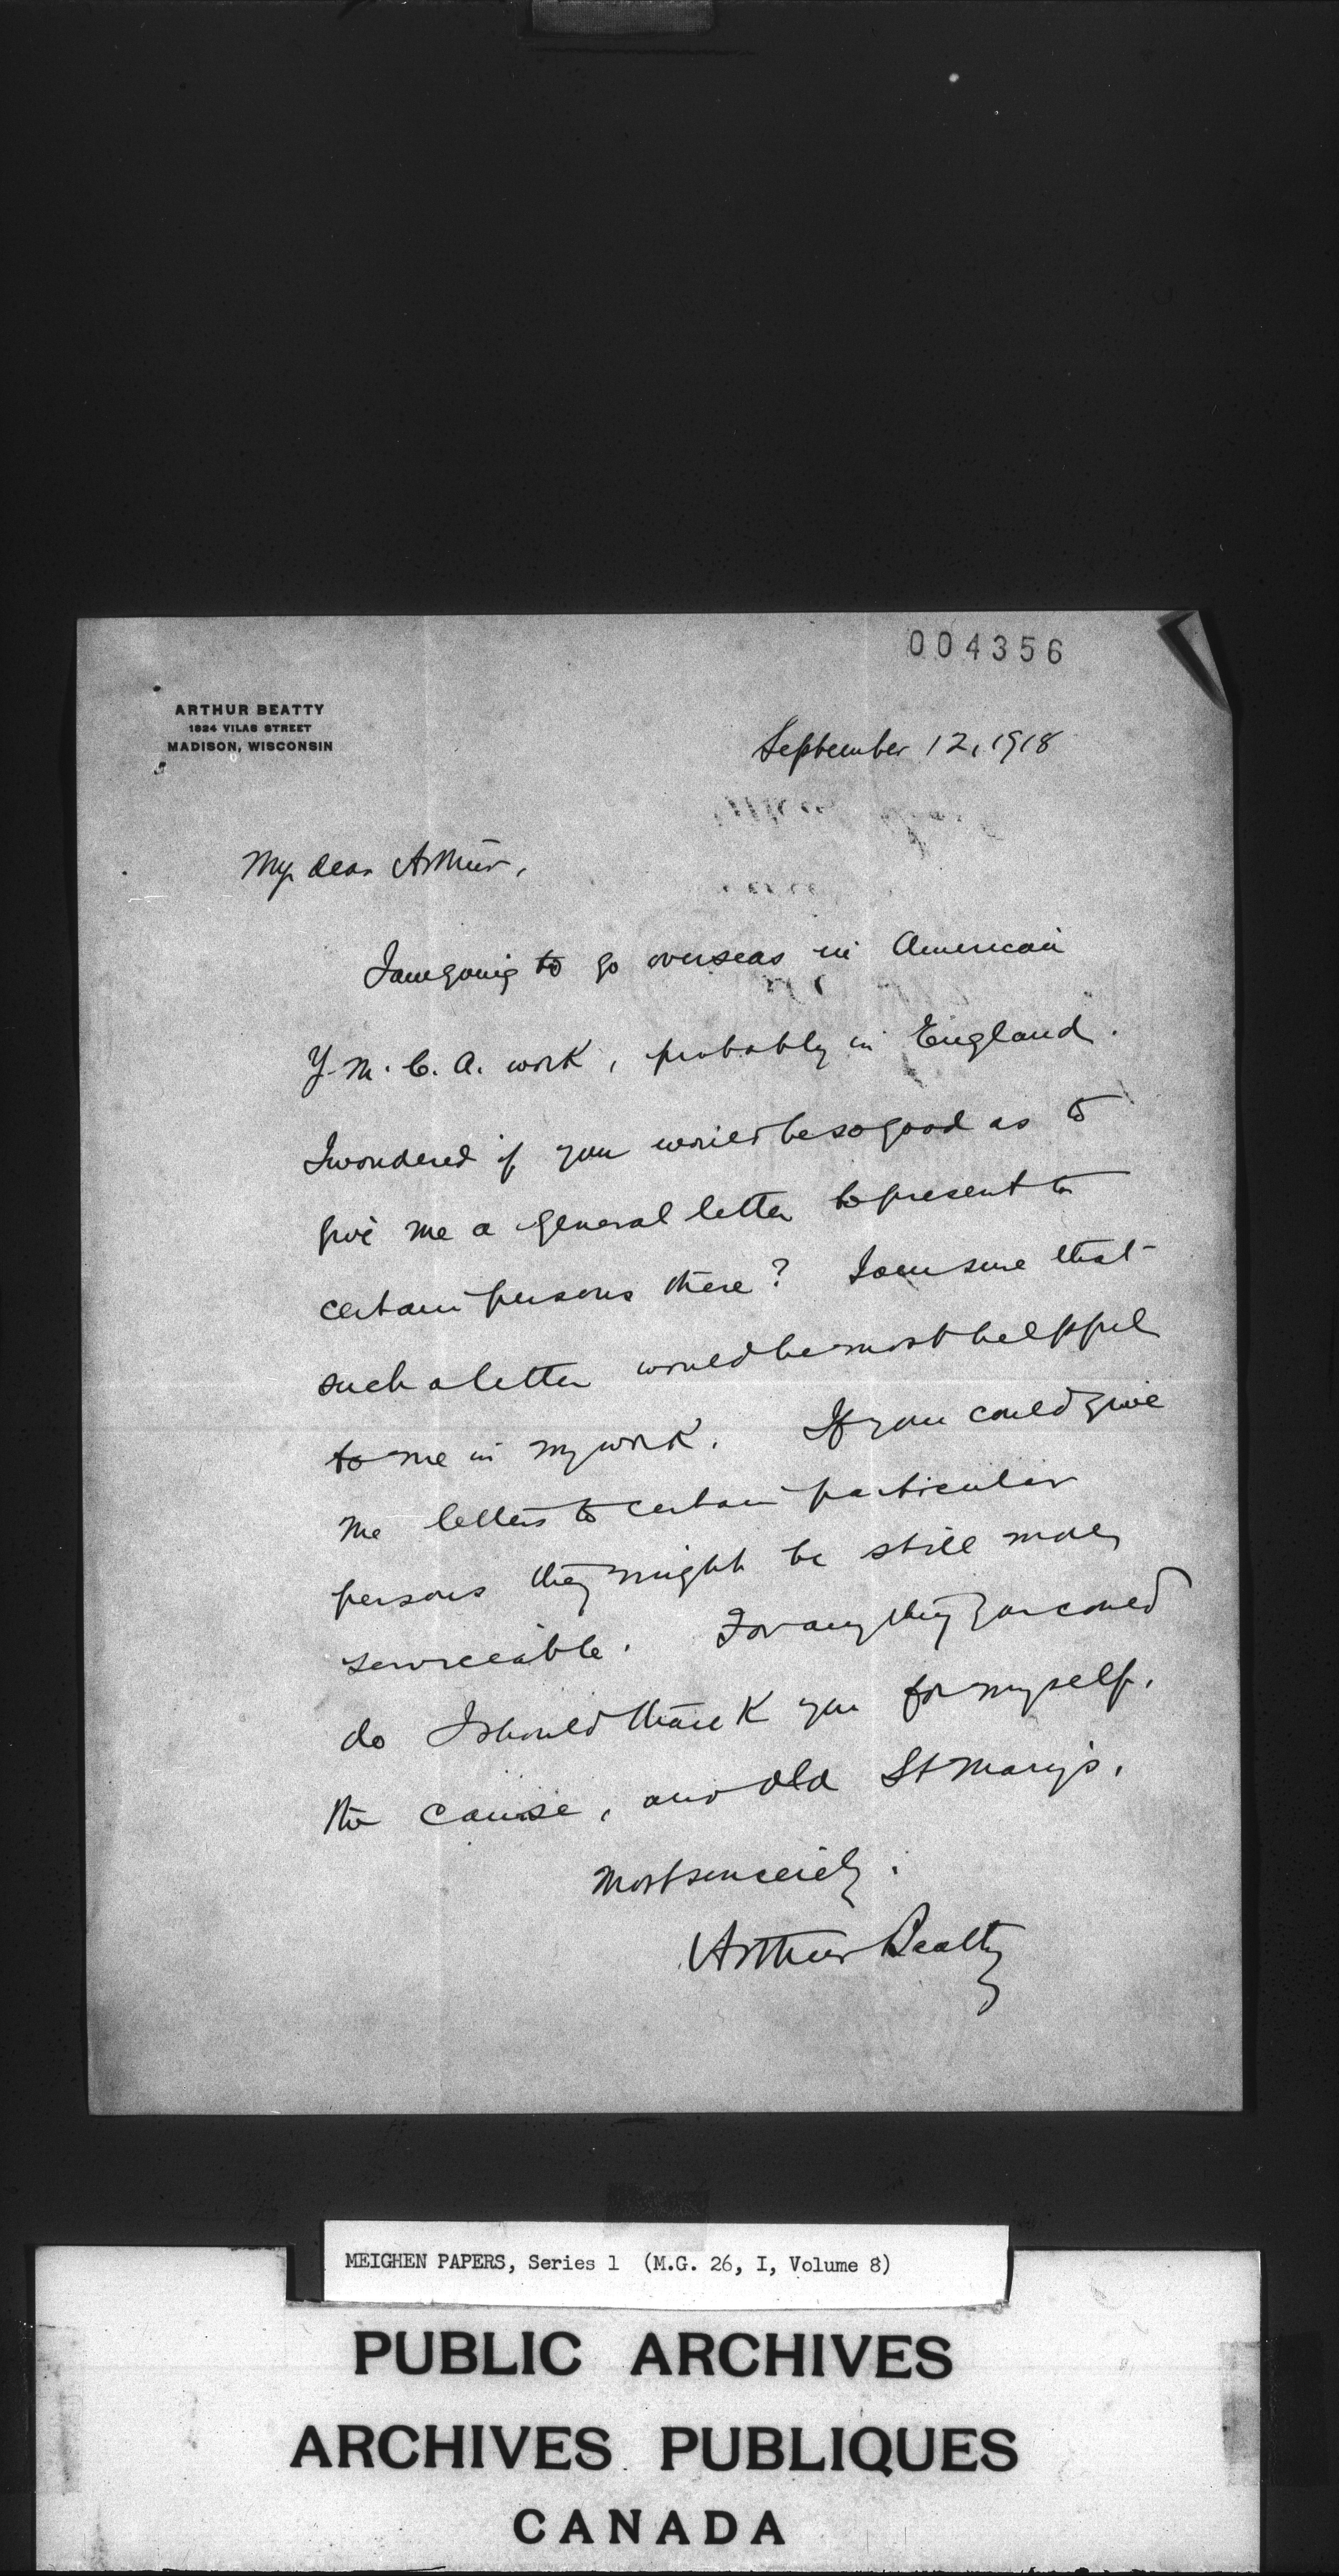 004356
ARTHUR BEATTY
1824 VILAS STREET
MADISON, WISCONSIN
September 12, 1918
My dear Arthur,
I am going to go overseas in American
Y.M.C.A. work, probably in England.
I wondered if you would be so good as to
give me a general letter to present to
certain persons there? I am sure that
such a letter would be most helpful
to me in my work. If you could give
me letters to certain particular
persons they might be still more
serviceable. For anything you could
do I should thank you for myself,
the cause, and old St Mary's.
Most sincerely,
Arthur Beatty
MEIGHEN PAPERS, Series 1 (M.G. 26, I, Volume 8)
PUBLIC ARCHIVES
ARCHIVES PUBLIQUES
CANADA